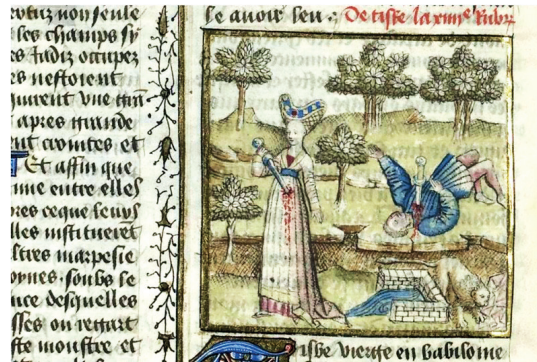 non seule
les champs sy
occupez
rs nestoient
Jurent vne
apres grande
ent comtes et
Et affin que
me entre elles
res ce que leurs
lles instituerent
ltres marpesie
oynes soubs le
nce desquelles
sses on
ste monstre et
le avoir leu :
De tisbe la xiije Rubr
isbe vierge en babiloine